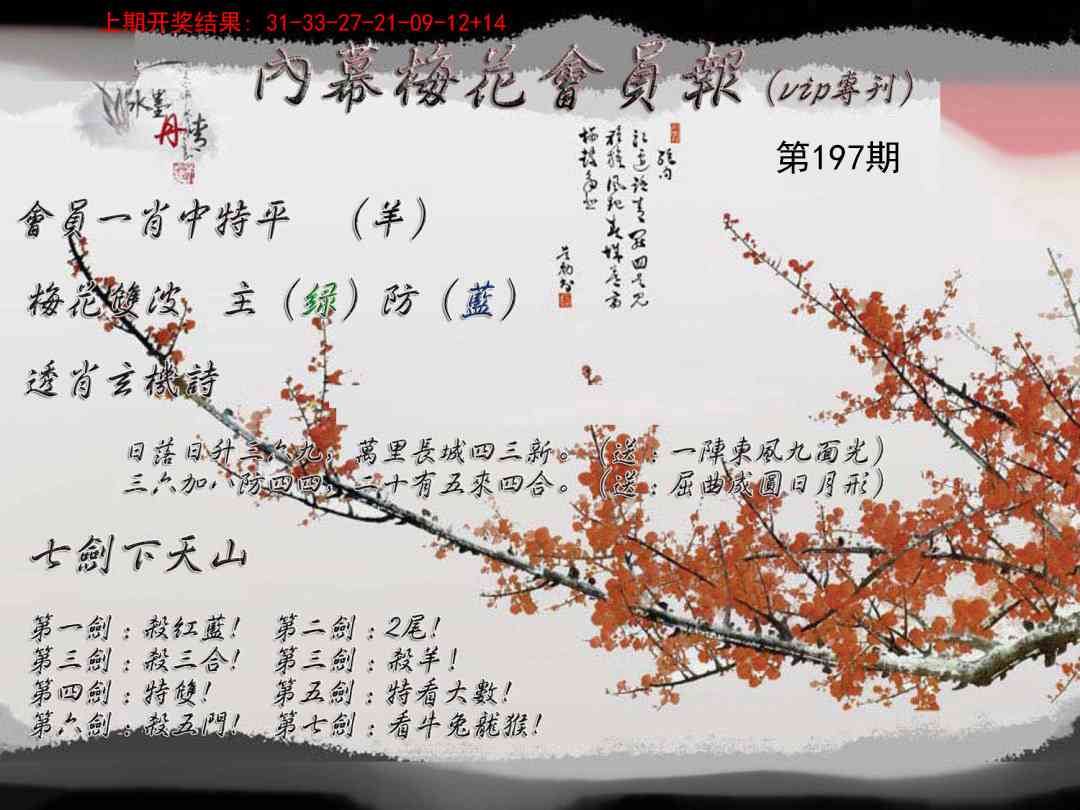 上期开奖结果: 31-33-27-21-09-12+14
內幕梅花會員報(vip專刊)
水墨
丹青
第197期
會員一肖中特平 (羊)
梅花雙波 主(绿)防(藍)
透肖玄機詩
日落日升三六九，萬里長城四三新。(送:一陣東風九面光)
三六加八防四四，二十有五來四合。(送:屈曲成圓日月形)
七劍下天山
第一劍:殺紅藍! 第二劍:2尾!
第三劍:殺三合! 第三劍:殺羊!
第四劍:特雙! 第五劍:特看大數!
第六劍:殺五門! 第七劍:看牛兔龍猴!